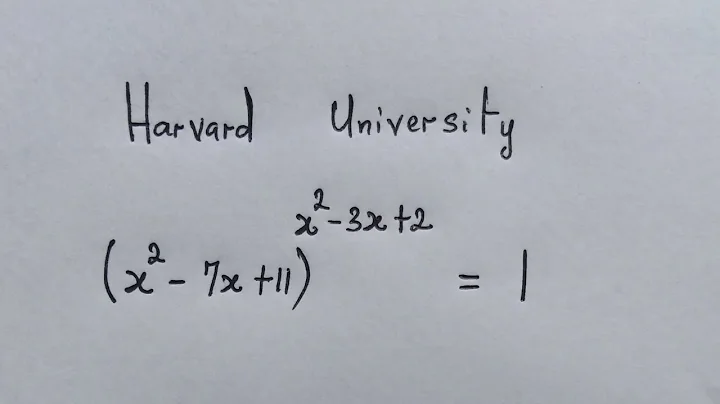 Harvard University
(x² - 7x + 11)^(x² - 3x + 2) = 1